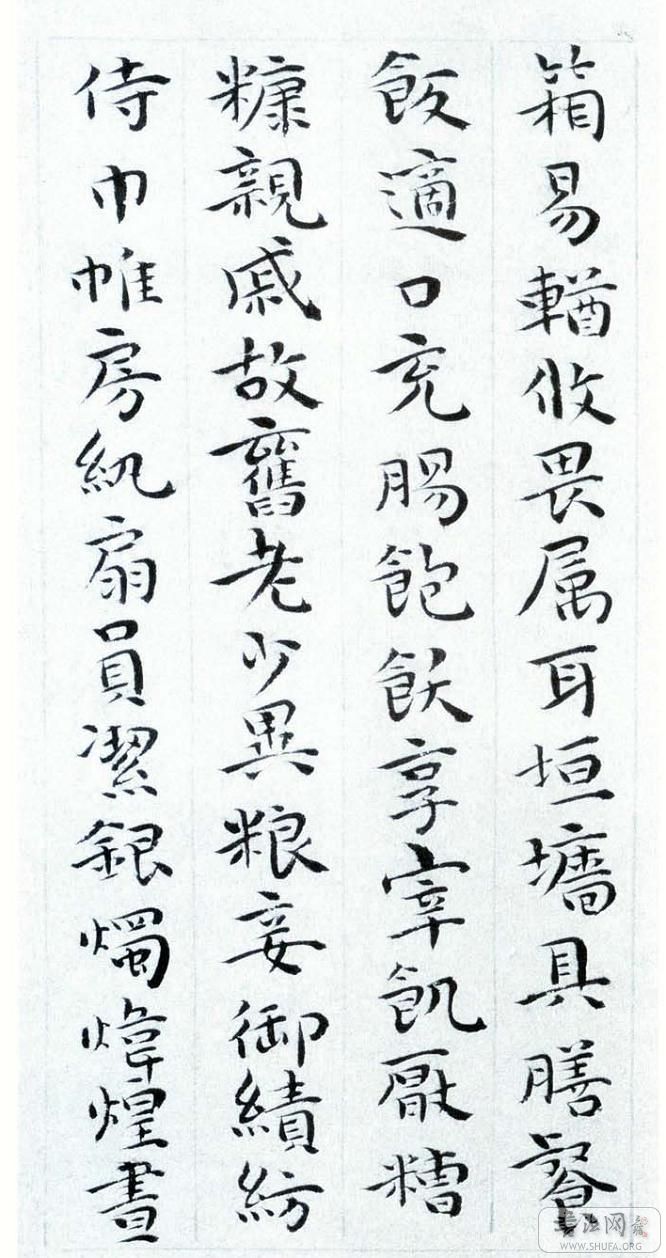 箱易輶攸畏属耳垣墻具膳餐
飯適口充腸飽飫享宰飢厭糟
糠親戚故舊老少異粮妾御績紡
侍巾帷房紈扇員潔銀燭煒煌晝
书法网
WWW.SHUFA.ORG